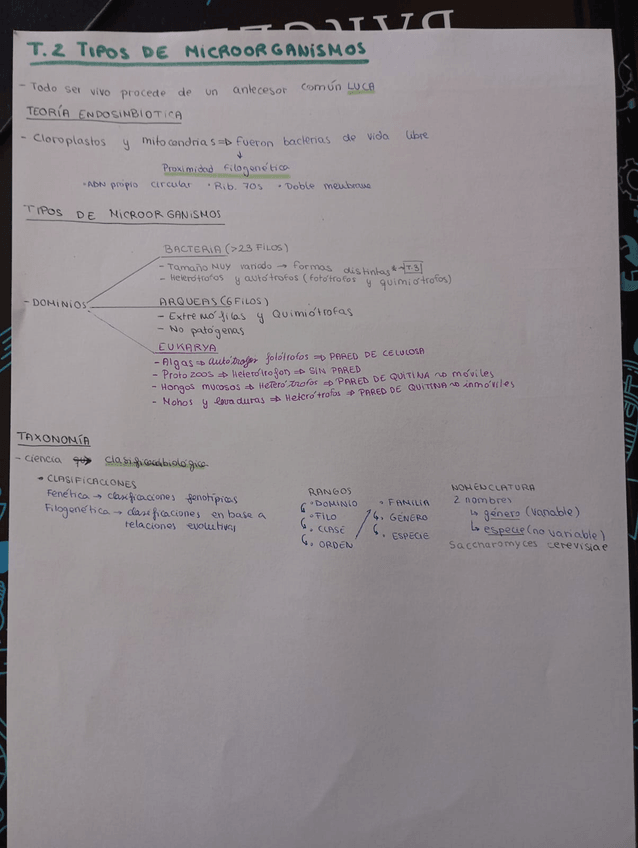 T.2 TIPOS DE MICROORGANISMOS
- Todo ser vivo procede de un antecesor común LUCA
TEORÍA ENDOSINBIOTICA
- Cloroplastos y mitocondrias ⇒ fueron bacterias de vida libre
↓
Proximidad filogenética
• ADN propio circular • Rib. 70s • Doble membrana
TIPOS DE MICROORGANISMOS
- DOMINIOS
BACTERIA (>23 FILOS)
- Tamaño MUY variado → formas distintas * T.3
- Heterótrofos y autótrofos (fotótrofos y quimiótrofos)
ARQUEAS (6 FILOS)
- Extremófilas y Quimiótrofas
- No patógenas
EUKARYA
- Algas ⇒ autótrofos fotótrofos ⇒ PARED DE CELULOSA
- Protozoos ⇒ Heterótrofos ⇒ SIN PARED
- Hongos mucosos ⇒ Heterótrofos ⇒ PARED DE QUITINA ⇒ móviles
- Mohos y levaduras ⇒ Heterótrofos ⇒ PARED DE QUITINA ⇒ inmóviles
TAXONOMÍA
- Ciencia
• CLASIFICACIONES
Fenética → clasificaciones fenotípicas
Filogenética → clasificaciones en base a
relaciones evolutivas
RANGOS
• DOMINIO
• FILO
• CLASE
• ORDEN
• FAMILIA
• GÉNERO
• ESPECIE
NOMENCLATURA
2 nombres
↳ género (variable)
↳ especie (no variable)
Saccharomyces cerevisiae